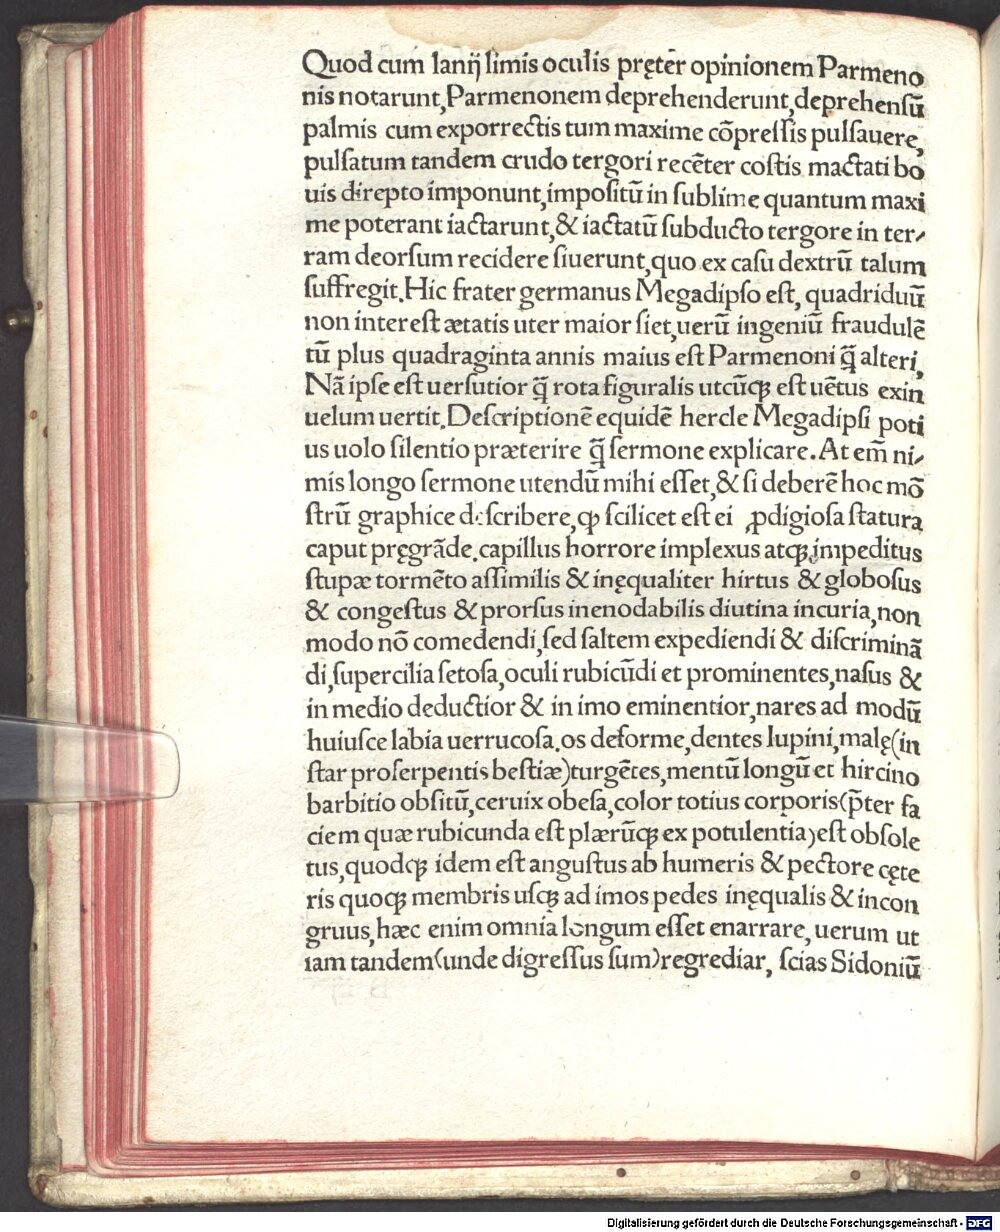 Quod cum lanij limis oculis pręter opinionem Parmeno
nis notarunt,Parmenonem deprehenderunt,deprehensū
palmis cum exporrectis tum maxime cōpressis pulsauere,
pulsatum tandem crudo tergori recēter costis mactati bo
uis direpto imponunt,impositū in sublime quantum maxi
me poterant iactarunt,& iactatū subducto tergore in ter-
ram deorsum recidere siuerunt,quo ex casu dextrū talum
suffregit.Hic frater germanus Megadipso est, quadriduū
non interest ætatis uter maior siet,uerū ingeniū fraudulē
tū plus quadraginta annis maius est Parmenoni q̄ alteri,
Nā ipse est uersutior q̄ rota figuralis utcūqꝫ est uētus exin
uelum uertit.Descriptionē equidē hercle Megadipsi poti
us uolo silentio præterire q̄ sermone explicare.At em̄ ni-
mis longo sermone utendū mihi esset,& si deberē hoc mō
strū graphice describere,ꝙ scilicet est ei ꝓdigiosa statura
caput pręgrāde,capillus horrore implexus atqꝫ impeditus
stupæ tormēto assimilis & inęqualiter hirtus & globosus
& congestus & prorsus inenodabilis diutina incuria,non
modo nō comedendi,sed saltem expediendi & discriminā
di,supercilia setosa,oculi rubicūdi et prominentes,nasus &
in medio deductior & in imo eminentior,nares ad modū
huiusce labia uerrucosa.os deforme,dentes lupini,malę(in
star proserpentis bestiæ)turgētes,mentū longū et hircino
barbitio obsitū,ceruix obesa,color totius corporis(p̄ter fa
ciem quæ rubicunda est plærūqꝫ ex potulentia)est obsole
tus,quodqꝫ idem est angustus ab humeris & pectore cęte
ris quoqꝫ membris usqꝫ ad imos pedes inęqualis & incon
gruus,hæc enim omnia longum esset enarrare, uerum ut
iam tandem(unde digressus sum)regrediar, scias Sidoniū
Digitalisierung gefördert durch die Deutsche Forschungsgemeinschaft - DFG